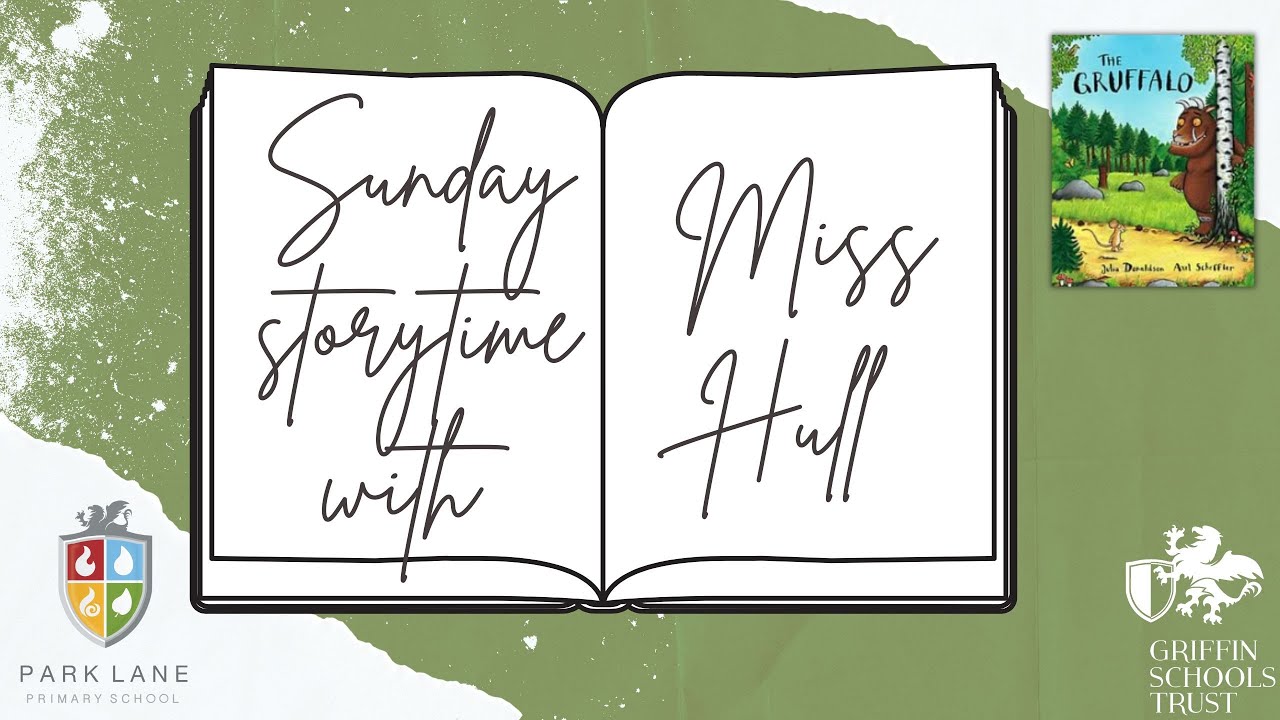 Sunday
storytime
with
Miss
Hull
THE
GRUFFALO
Julia Donaldson Axel Scheffler
PARK LANE
PRIMARY SCHOOL
GRIFFIN
SCHOOLS
TRUST